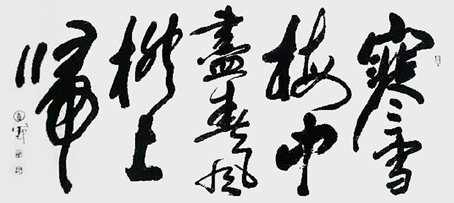 寒雪
梅中
盡春風
柳上
歸